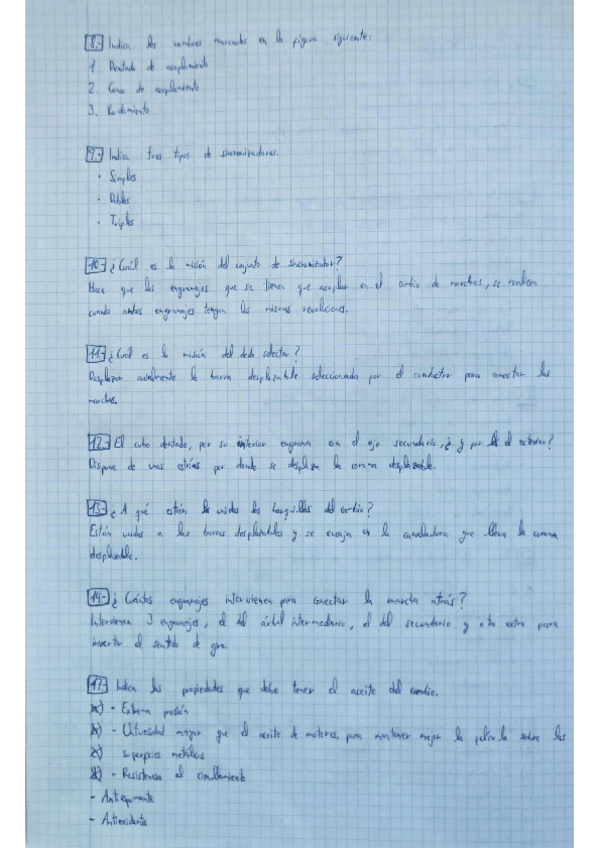 8.- Indica los nombres marcados en la figura siguiente:
1. Dentado de acoplamiento
2. Cono de acoplamiento
3. Rodamiento
9.- Indica tres tipos de sincronizadores.
· Simples
· Dobles
· Triples
10.- ¿Cuál es la misión del conjunto de sincronizador?
Hace que los engranajes que se tienen que acoplar en el cambio de marchas, se realicen
cuando ambos engranajes tengan las mismas revoluciones.
11.- ¿Cuál es la misión del dedo selector?
Desplazar axialmente la barra desplazable seleccionada por el conductor para conectar las
marchas.
12.- El cubo dentado, por su interior engrana con el eje secundario, ¿y por el exterior?
Dispone de unas estrías por donde se desplaza la corona desplazable.
13.- ¿A qué están unidas las horquillas del cambio?
Están unidas a las barras desplazables y se encajan en la canaladura que lleva la corona
desplazable.
14.- ¿Cuántos engranajes intervienen para conectar la marcha atrás?
Intervienen 3 engranajes, el del árbol intermediario, el del secundario y otro extra para
invertir el sentido de giro.
17.- Indica las propiedades que debe tener el aceite del cambio.
- Extrema presión
- Untuosidad mayor que el aceite de motores, para mantener mejor la película sobre las
superficies metálicas
- Resistencia al cizallamiento
- Antiespumante
- Antioxidante